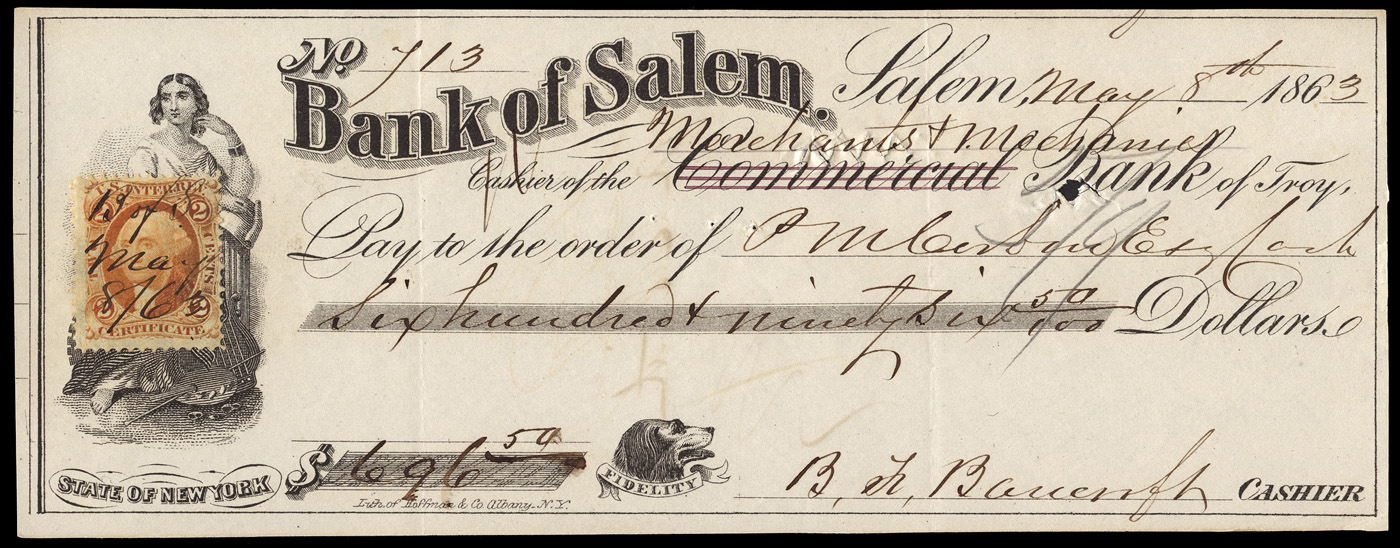 No. 713
Bank of Salem.
Salem, May 8th 1863
Merchants & Mechanics
Cashier of the Commercial Bank of Troy,
Pay to the order of Esq Cash
Six hundred & ninety six 50/100 Dollars.
$ 696 50
FIDELITY
B. F. Bancroft CASHIER
STATE OF NEW YORK
Lith. of Hoffman & Co. Albany. N.Y.
U.S. INTER. REV.
2 2
CENTS
May
8/63
2 2
CERTIFICATE